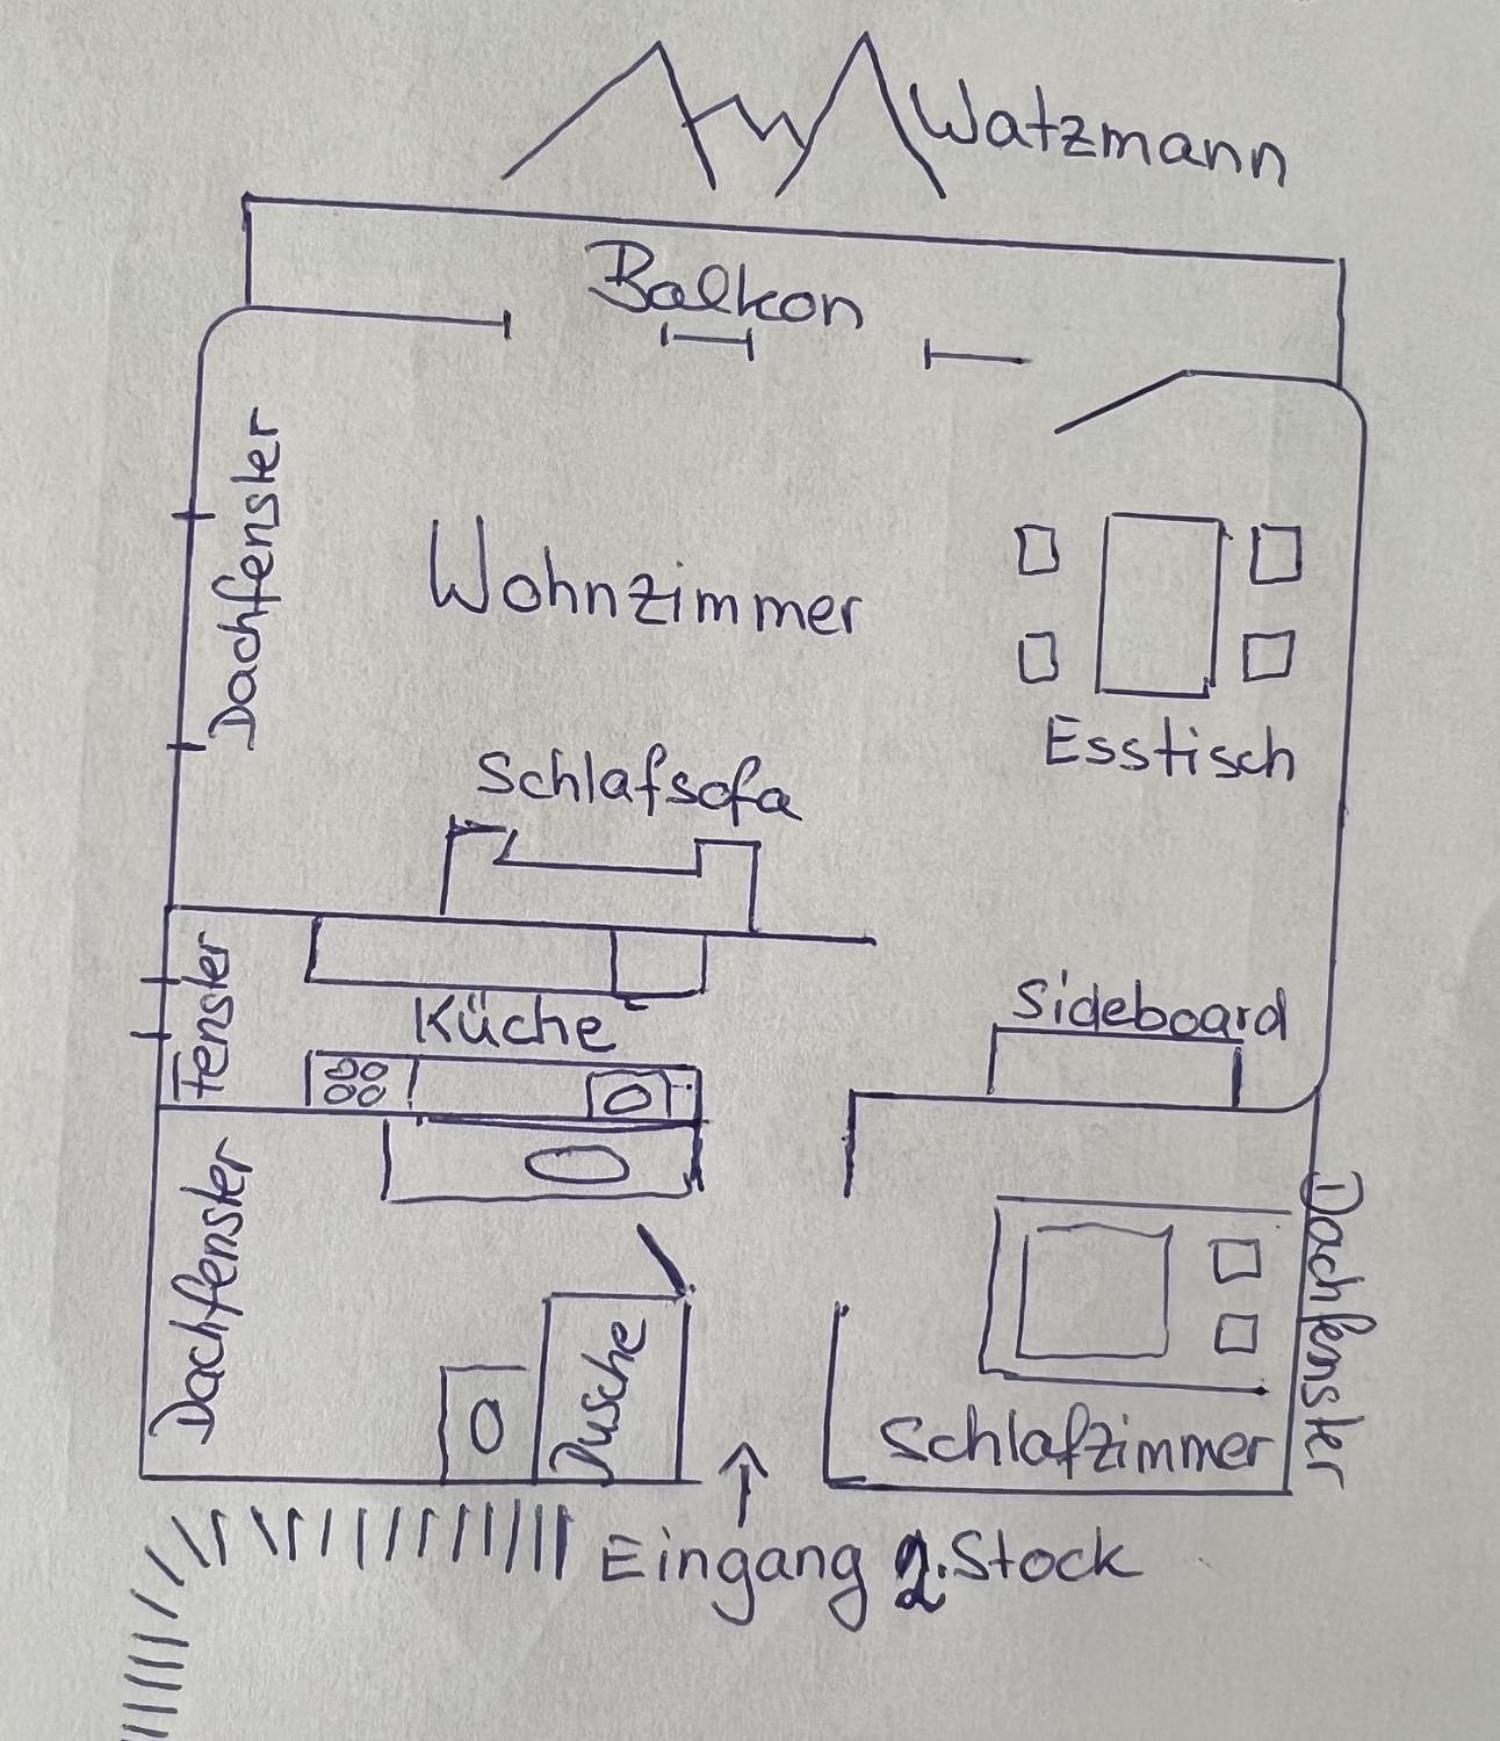 Watzmann
Balkon
Dachfenster
Wohnzimmer
Esstisch
Schlafsofa
Fenster
Küche
Sideboard
Dachfenster
Dusche
Schlafzimmer
Dachfenster
Eingang 2.Stock